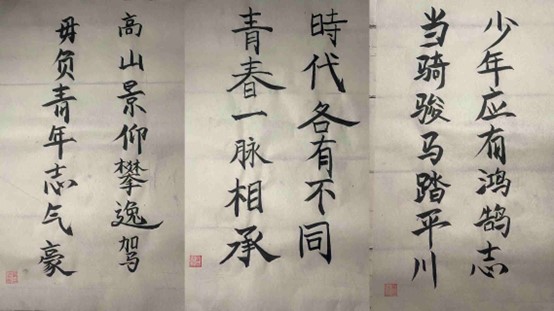 高山景仰攀逸駕
毋负青年志气豪
時代各有不同
青春一脉相承
少年应有鸿鹄志
当骑骏马踏平川